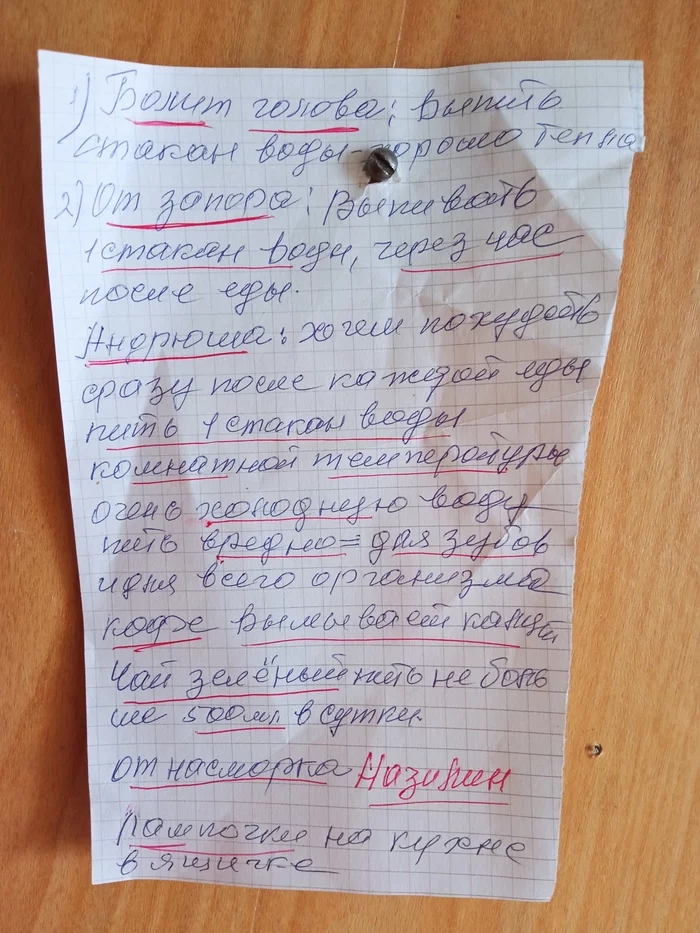 1) Болит голова: выпить
стакан воды - хорошо тепла
2) От запора: Выпивать
1 стакан воды, через час
после еды.
Андрюша: хочеш похудеть
сразу после каждой еды
пить 1 стакан воды
комнатной температуры
очень холодную воду
пить вредно = для зубов
и для всего организма
кофе вымывает кальций
Чай зелёный пить не боль
ше 500 мл в сутки.
от насморка Називин
Лампочки на кухне
в ящичке